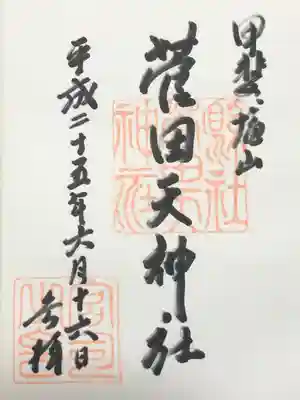 甲斐塩山
菅田天神社
平成二十五年六月十六日
参拝